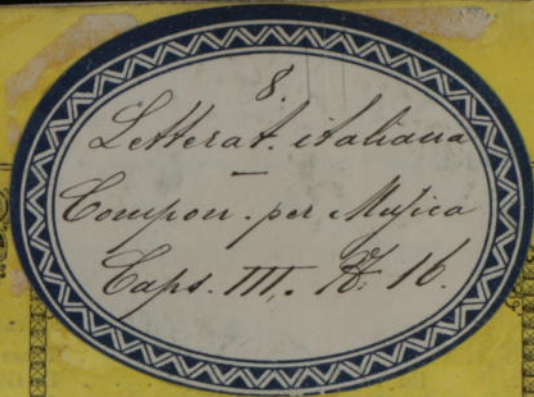 8.
Letterat. italiana
—
Compon. per Musica
Caps. III. N. 16.